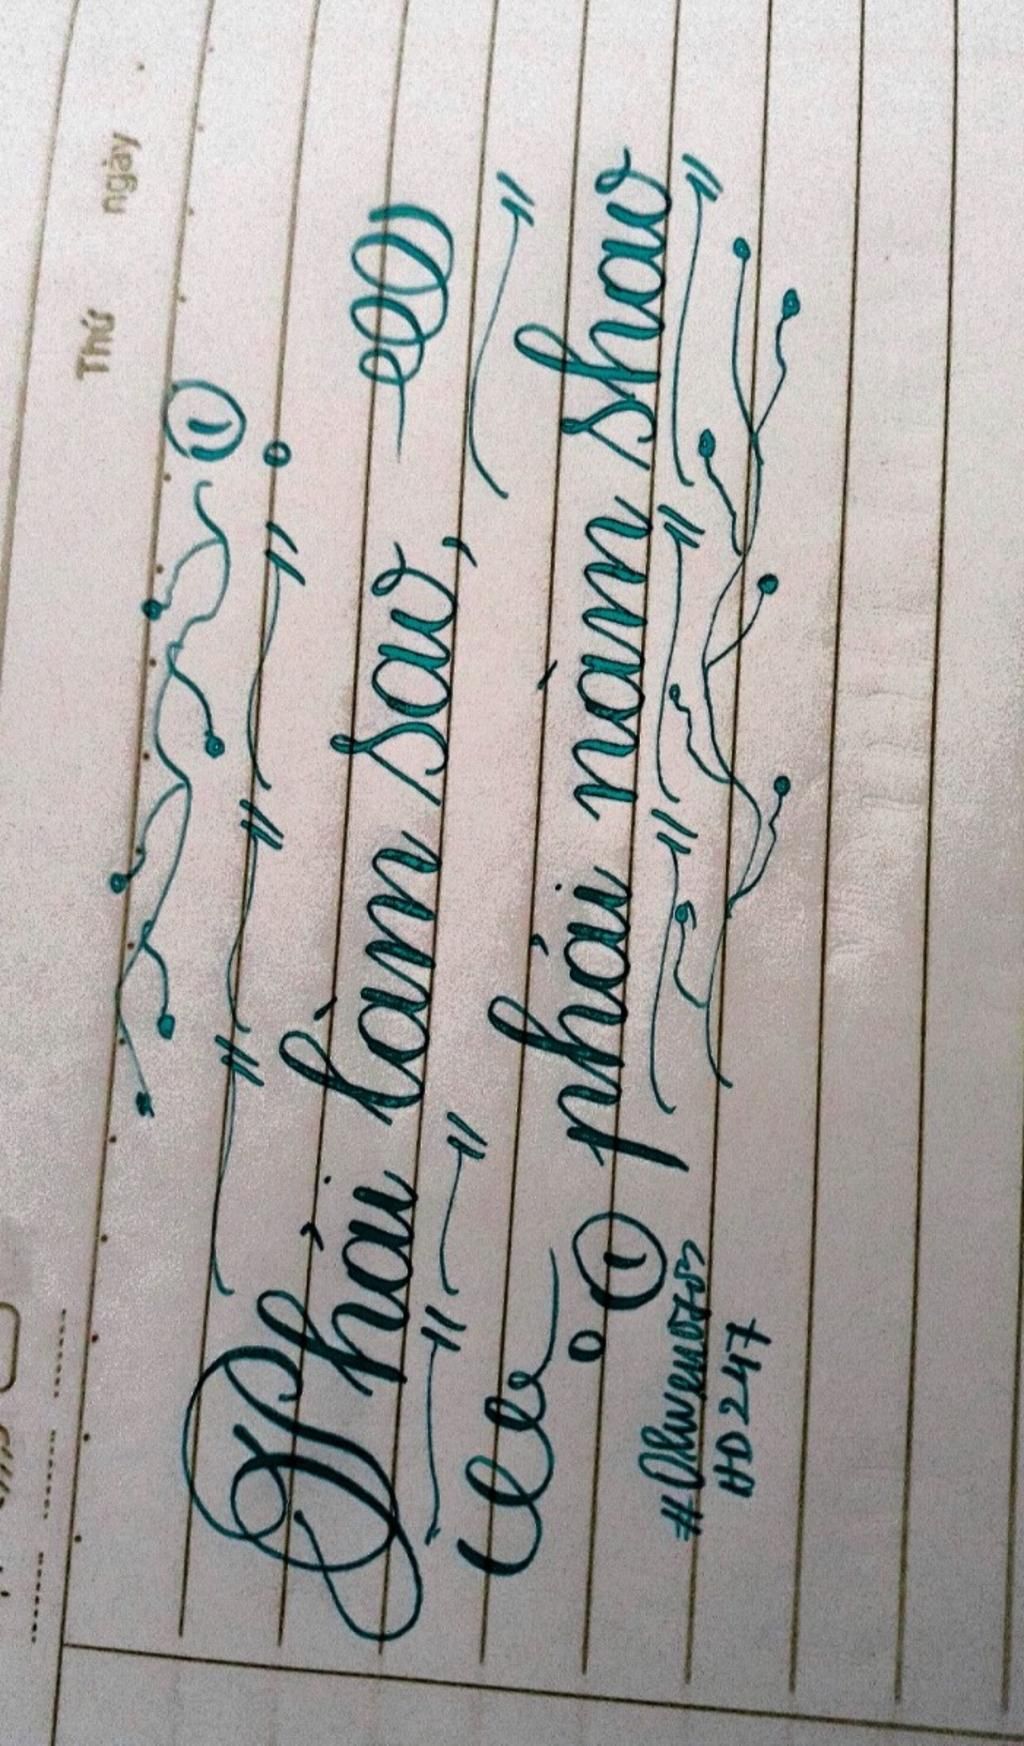 Thứ ngày
Phải làm sao,
phải nàm shao
HD247